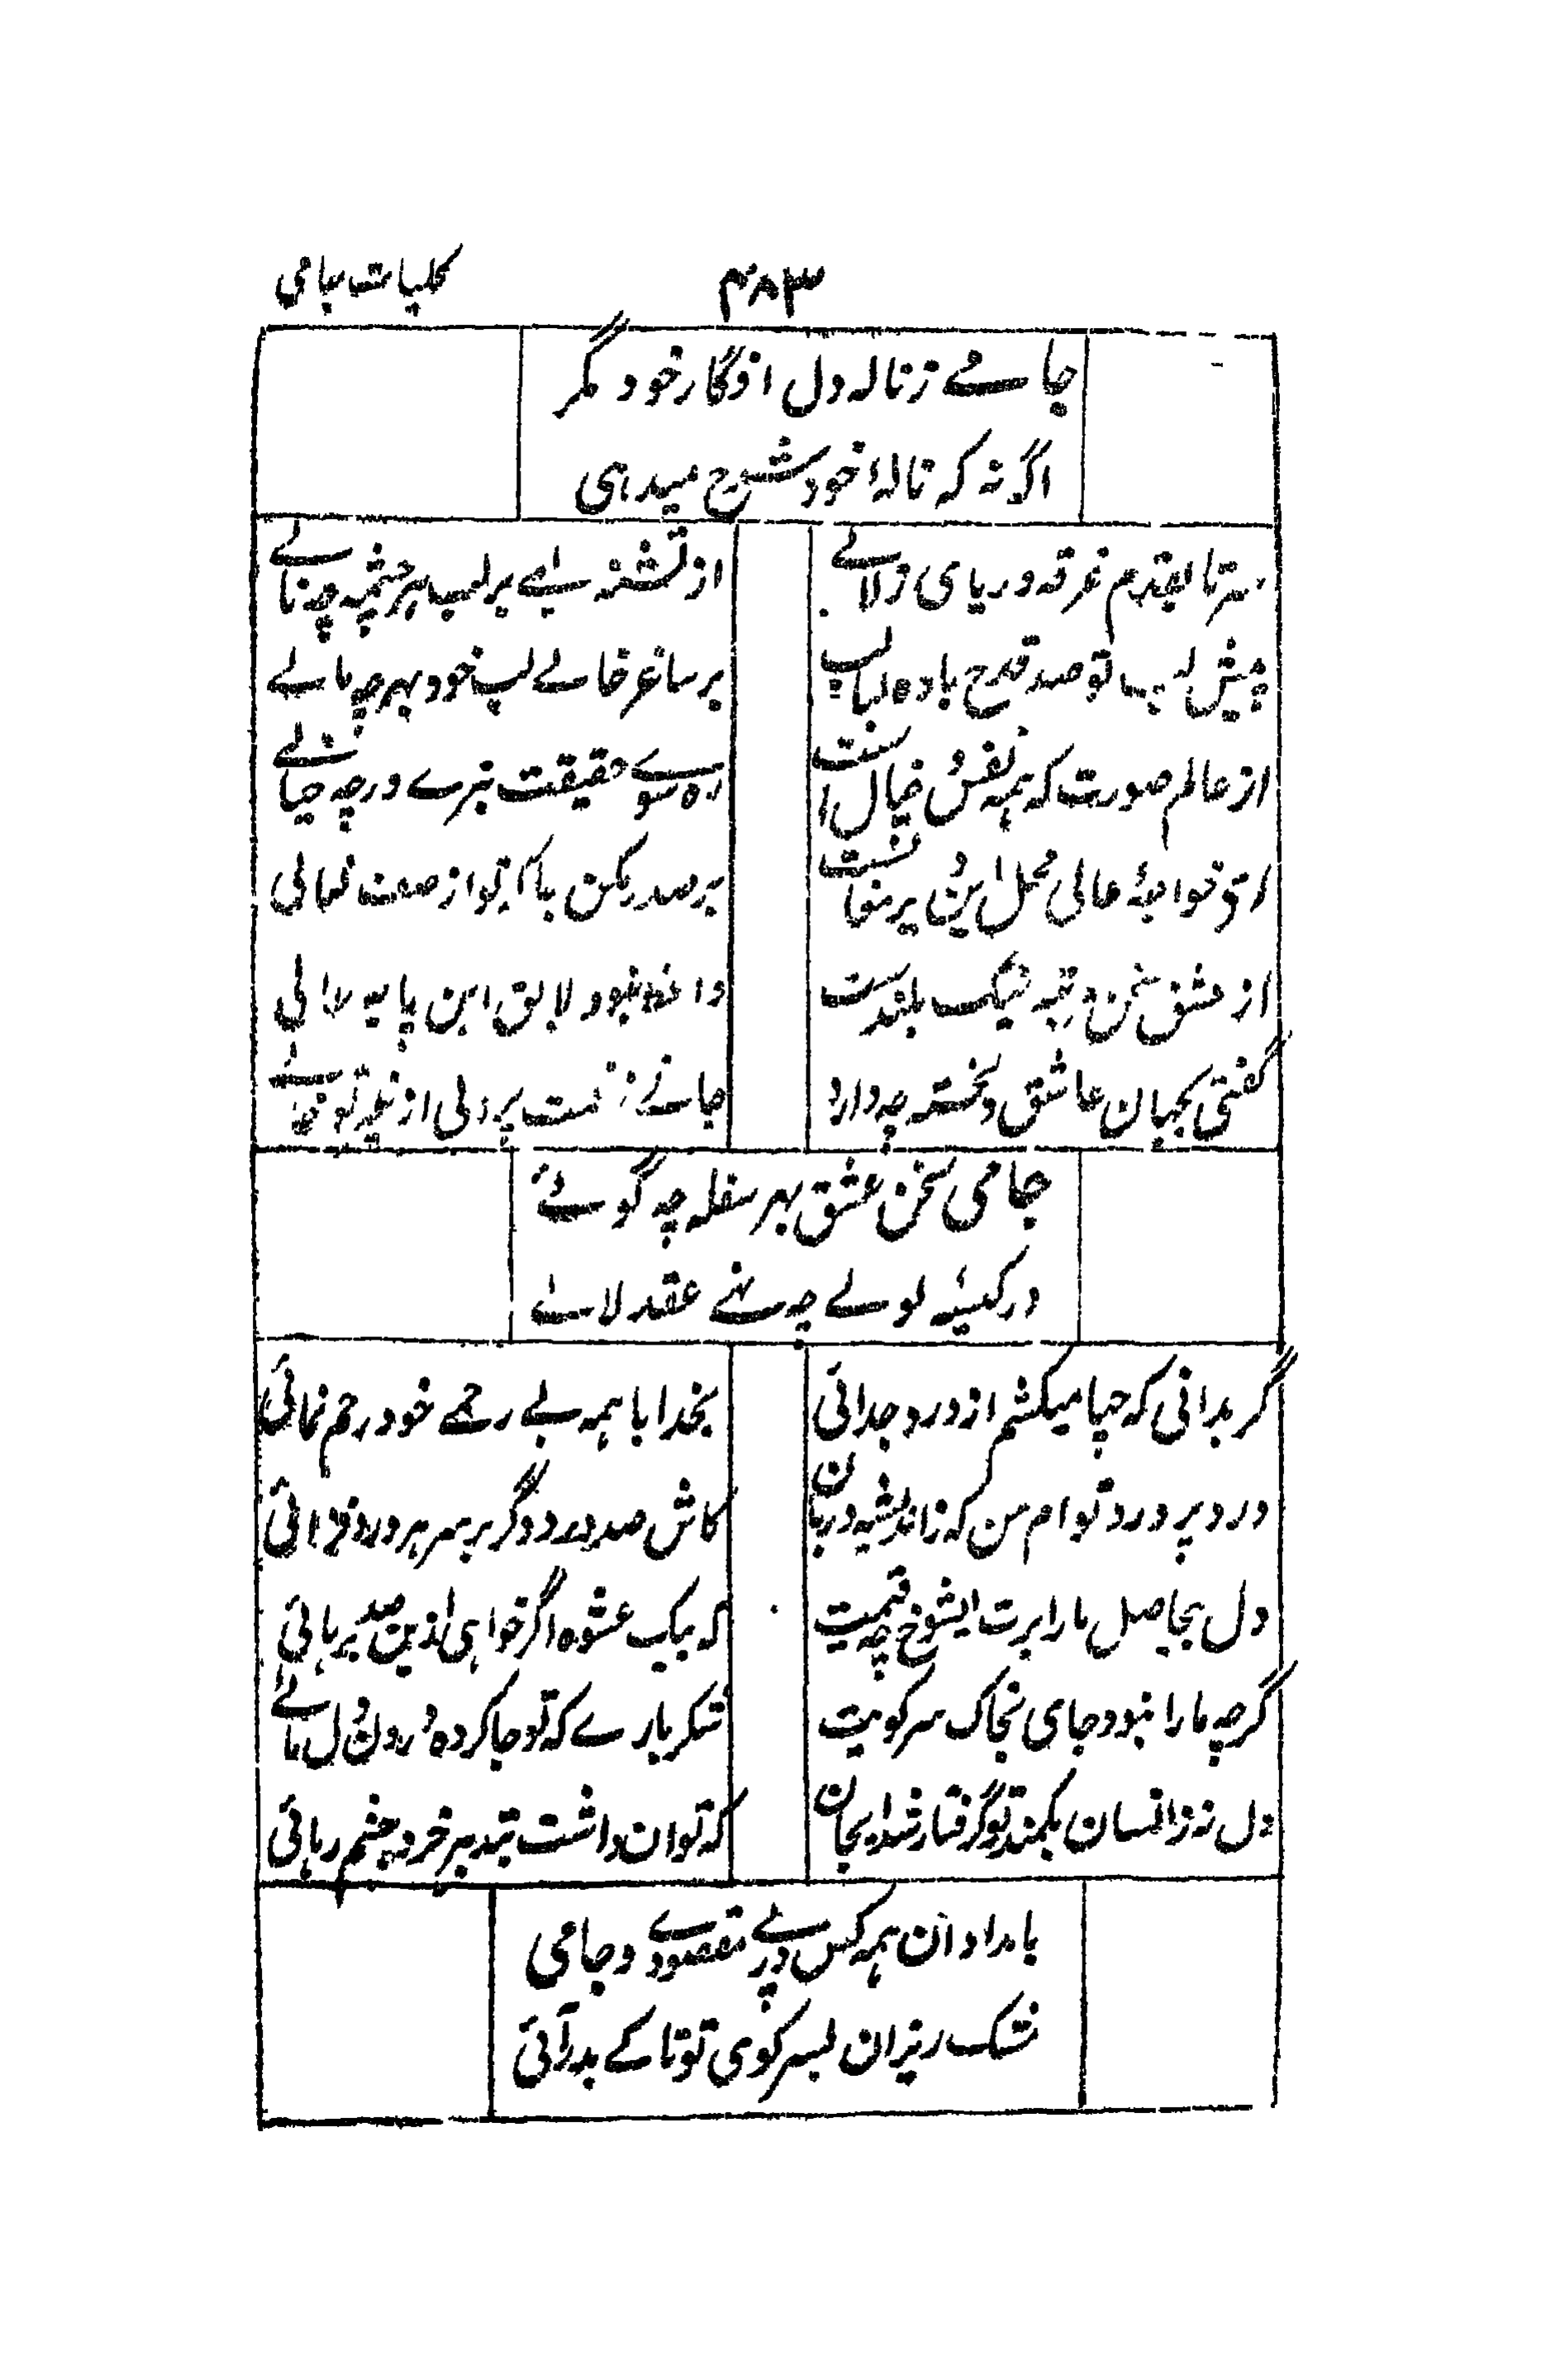 کلیات جامی
۴۸۳
جامے ز ناله دل افگار خود مگر
اگر نه که ناله خود شرح میدہی
سر تا بقدم غرقه دریای زلالے
از تشنه لبے بر لب هر چشمه چه نالے
پیش لب تو صد قدح باده لبالب
بر ساغر خالے لب خود بهر چه مالے
از عالم صورت که همه نقش خیال است
ره سوے حقیقت نبرے در چه خیالے
ای خواجهٔ عالی محل این دیر مغانست
بر صدر مکن جا تو از صف نعالی
از عشق سخن مرتبه نیک بلندست
واعظ نبود لایق این پایه عالی
گفتی بجهان عاشق دلخسته چه دارد
جانے ز غمت پر دلی از غیر تو خالے
جامی سخن عشق بهر سفله چه گوئے
در کیسهٔ لولے چه نهے عقد لالے
گر بدانی که چها میکشم از درد جدائی
بخدا با همه بے رحمے خود رحم نمائی
درد پرورد تو ام من که ز اندیشه درمان
کاش صد درد دگر بر سر هر درد فزائی
دل بیحاصل ما را برت ایشوخ چه قیمت
که بیک عشوه اگر خواهی ازین صد بربائی
گرچه ما را نبود جای بخاک سر کویت
شکر بارے که تو جا کرده درون دل مائے
دل نه زانسان بکمند تو گرفتار شد ایجان
که توان داشت بتدبیر خرد چشم رہائی
بامدادان همه کس در پے مقصودے و جامی
اشک ریزان بسر کوی تو تا کے بدر آئی